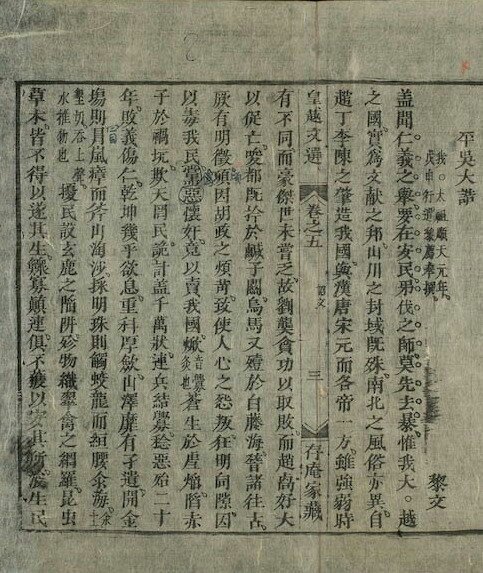 平吳大誥
我太祖順天元年
戊申行遣黎廌奉撰
黎文
蓋聞仁義之舉要在安民吊伐之師莫先去暴惟我大越
之國實為文献之邦山川之封域既殊南北之風俗亦異自
趙丁李陳之肇造我國與漢唐宋元而各帝一方雖強弱時
皇越文選 卷之五 誥文 三 存庵家藏
有不同而豪傑世未嘗乏故劉龔貪功以取敗而趙卨好大
以促亡唆都既拾於鹹子關烏馬又殪於白藤海嵇諸往古
厥有明徵頃因胡政之煩苛致使人心之怨叛狂明伺隙因
以毒我民黨惡懷奸竟以賣我國焮音釁灸也蒼生於虐焰陷赤
子於禍坑欺天罔民詭計蓋千萬狀連兵結釁稔惡殆二十
年敗義傷仁乾坤幾乎欲息重科厚斂山澤靡有孑遺開金
場則冒嵐瘴而斧山淘沙採明珠則觸蛟龍而絙腰汆海
水推物也擾民設玄鹿之陷阱殄物織翠禽之網羅昆虫
草木皆不得以遂其生鰥寡顛連俱不獲以安其所浚生民